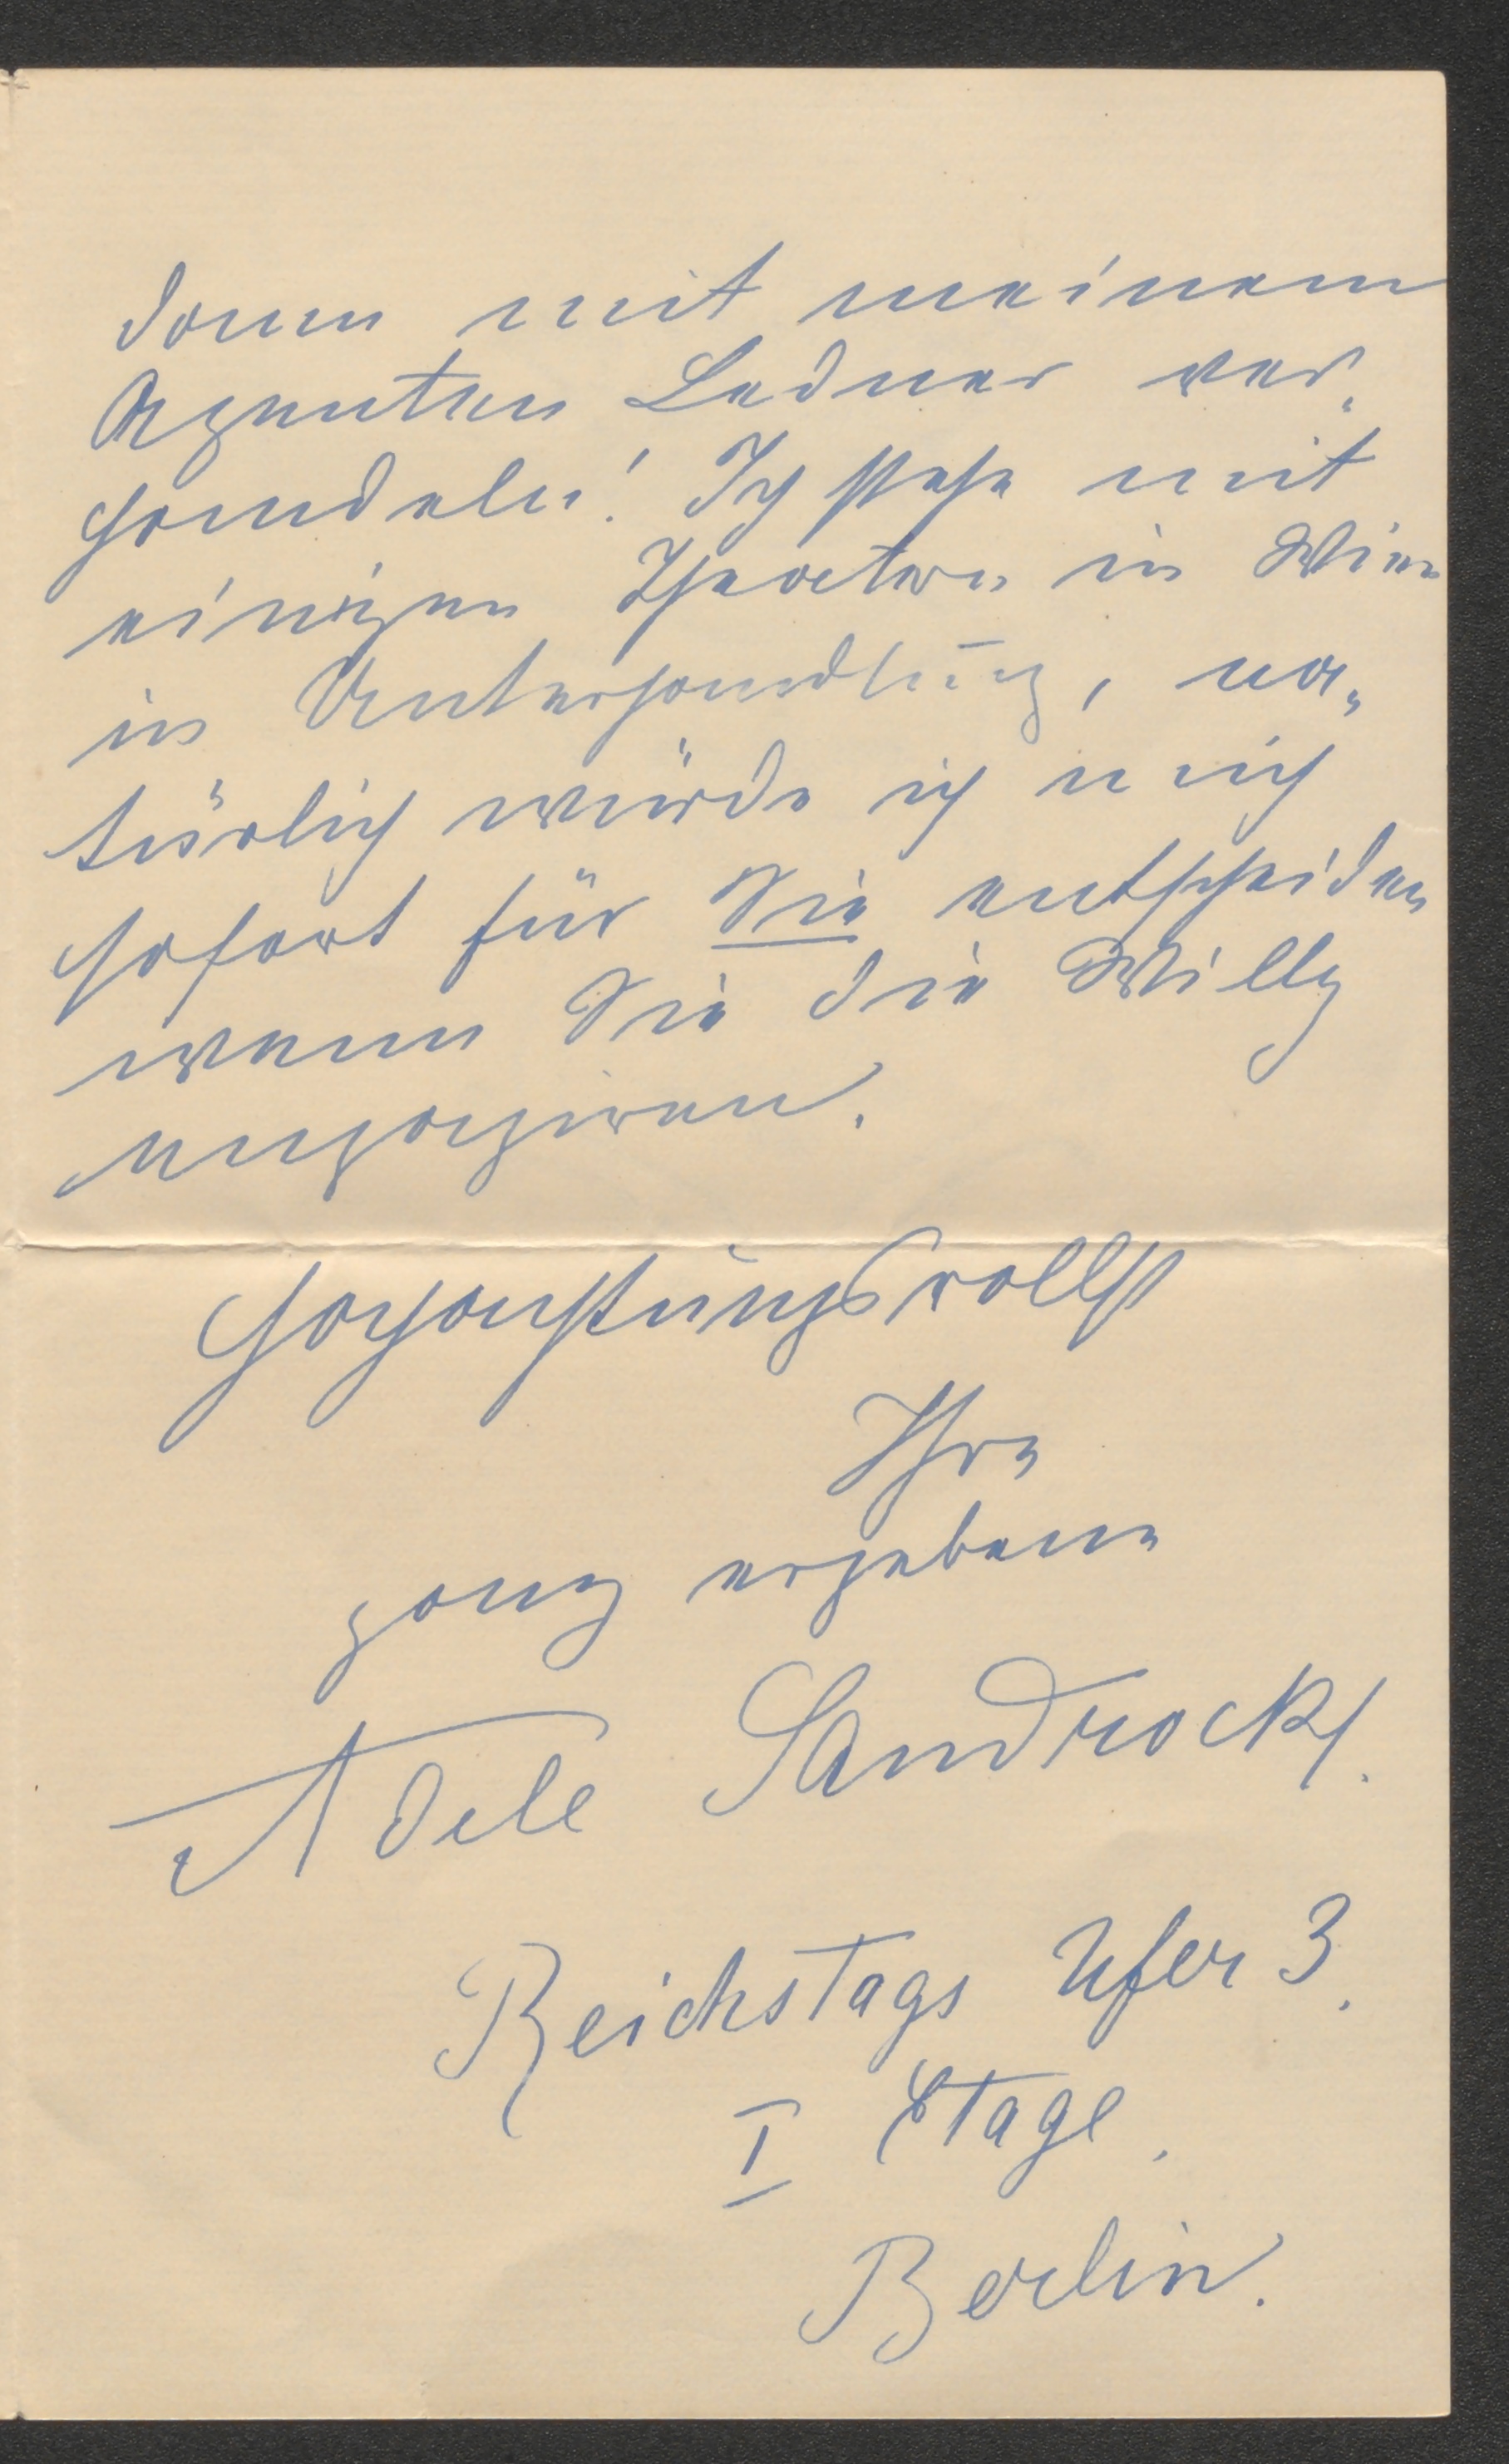 dann mit meinem
Agenten Ledner ver„
handeln! Ich stehe mit
einigen Theatern in Wien
in Unterhandlung, na„
türlich würde ich mich
sofort für Sie entscheiden
wenn Sie die Willy
engagiren.
Hochachtungsvollst
Ihre
ganz ergebene
Adele Sandrock.
Reichstags Ufer 3.
I Etage.
Berlin.